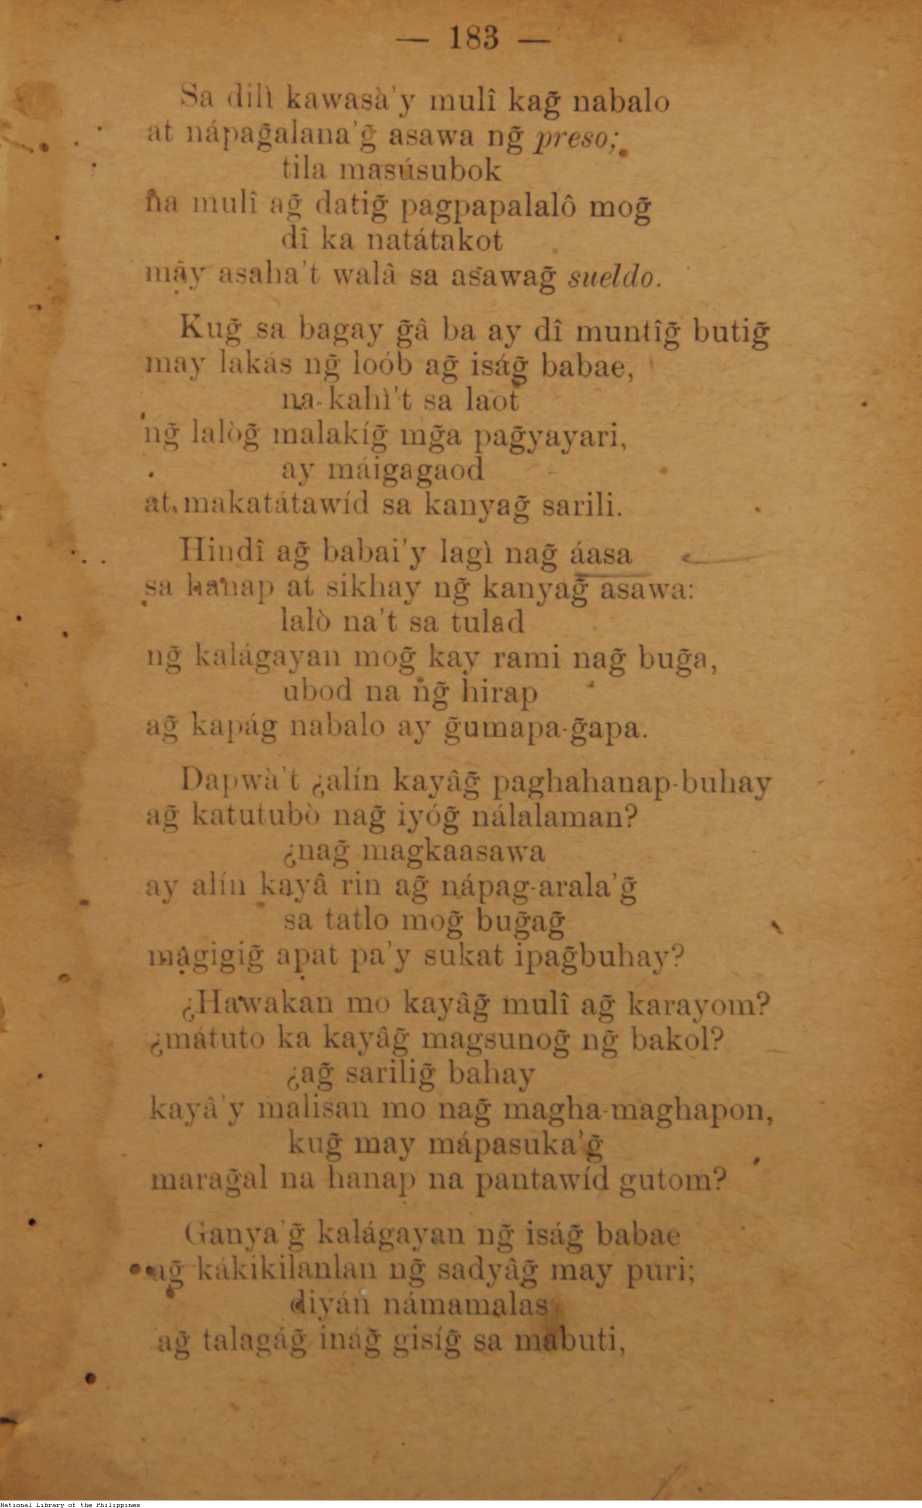 — 183 —
Sa dilì kawasà'y mulî kag̃ nabalo
at nápag̃alana'g̃ asawa ng̃ preso;
tila masúsubok
na mulî ag̃ datig̃ pagpapalalô mog̃
dî ka natátakot
mây asaha't walâ sa asawag̃ sueldo.
Kug̃ sa bagay g̃â ba ay dî muntîg̃ butig̃
may lakás ng̃ loób ag̃ iság̃ babae,
na kahì't sa laot
ng̃ lalòg̃ malakíg̃ mg̃a pag̃yayari,
ay máigagaod
at makatátawíd sa kanyag̃ sarili.
Hindî ag̃ babai'y lagì nag̃ áasa
sa hanap at sikhay ng̃ kanyag̃ asawa:
lalò na't sa tulad
ng̃ kalágayan mog̃ kay rami nag̃ bug̃a,
ubod na ng̃ hirap
ag̃ kapág nabalo ay g̃umapa-g̃apa.
Dapwà't ¿alín kayâg̃ paghahanap-buhay
ag̃ katutubò nag̃ iyóg̃ nálalaman?
¿nag̃ magkaasawa
ay alín kayâ rin ag̃ nápag-arala'g̃
sa tatlo mog̃ bug̃ag̃
mágigig̃ apat pa'y sukat ipag̃buhay?
¿Hawakan mo kayâg̃ mulî ag̃ karayom?
¿mátuto ka kayâg̃ magsunog̃ ng̃ bakol?
¿ag̃ sarilig̃ bahay
kayâ'y malisan mo nag̃ magha-maghapon,
kug̃ may mápasuka'g̃
marag̃al na hanap na pantawíd gutom?
Ganya'g̃ kalágayan ng̃ iság̃ babae
ag̃ kákikilanlan ng̃ sadyâg̃ may puri;
diyán námamalas
ag̃ talagág̃ inág̃ gisíg̃ sa mabuti,
National Library of the Philippines